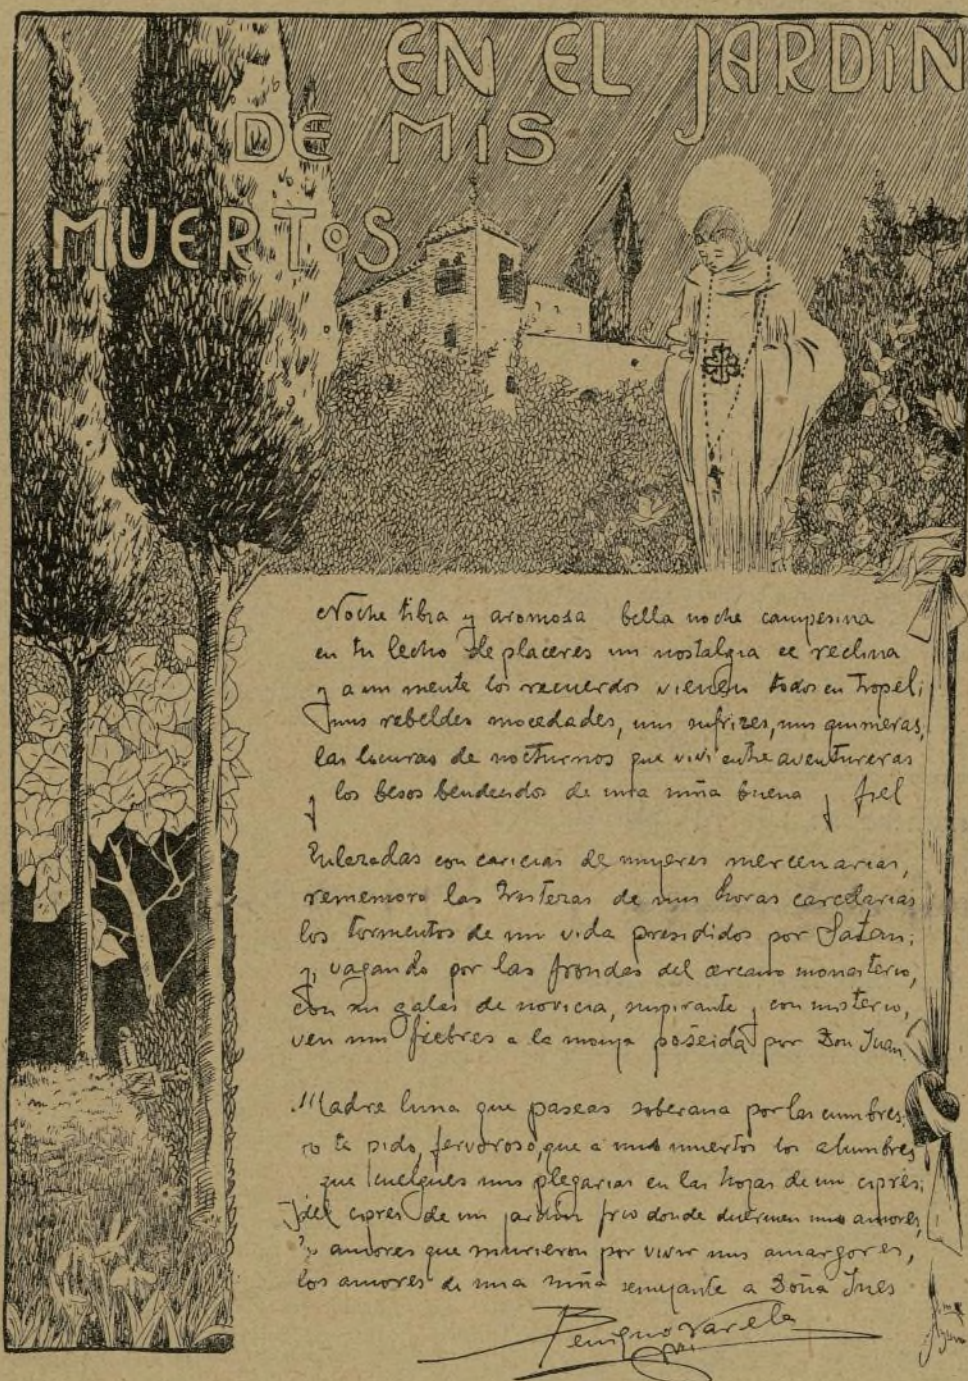 EN EL JARDIN
DE MIS
MUERTOS
Noche tibia y aromosa bella noche campesina
en tu lecho de placeres mi nostalgia se reclina
y a mi mente los recuerdos vienen todos en tropel;
mis rebeldes mocedades, mis sufrires, mis quimeras,
las locuras de nocturnos que viví entre aventureras
y los besos bendecidos de una niña buena y fiel
Enlazadas con caricias de mujeres mercenarias,
rememoro las tristezas de mis horas carcelarias
los tormentos de mi vida presididos por Satan;
y, vagando por las frondas del arcano monasterio,
con sus galas de novicia, suspirante y con misterio,
ven mis fiebres a la monja poseida por Don Juan
Madre luna que paseas soberana por las cumbres,
yo te pido, fervoroso, que a mis muertos los alumbres
que cuelgues mis plegarias en las hojas de un ciprés;
del cipres de un jardin frio donde duermen mis amores,
los amores que murieron por vivir mis amargores,
los amores de una niña semejante a Doña Ines
Benigno Varela